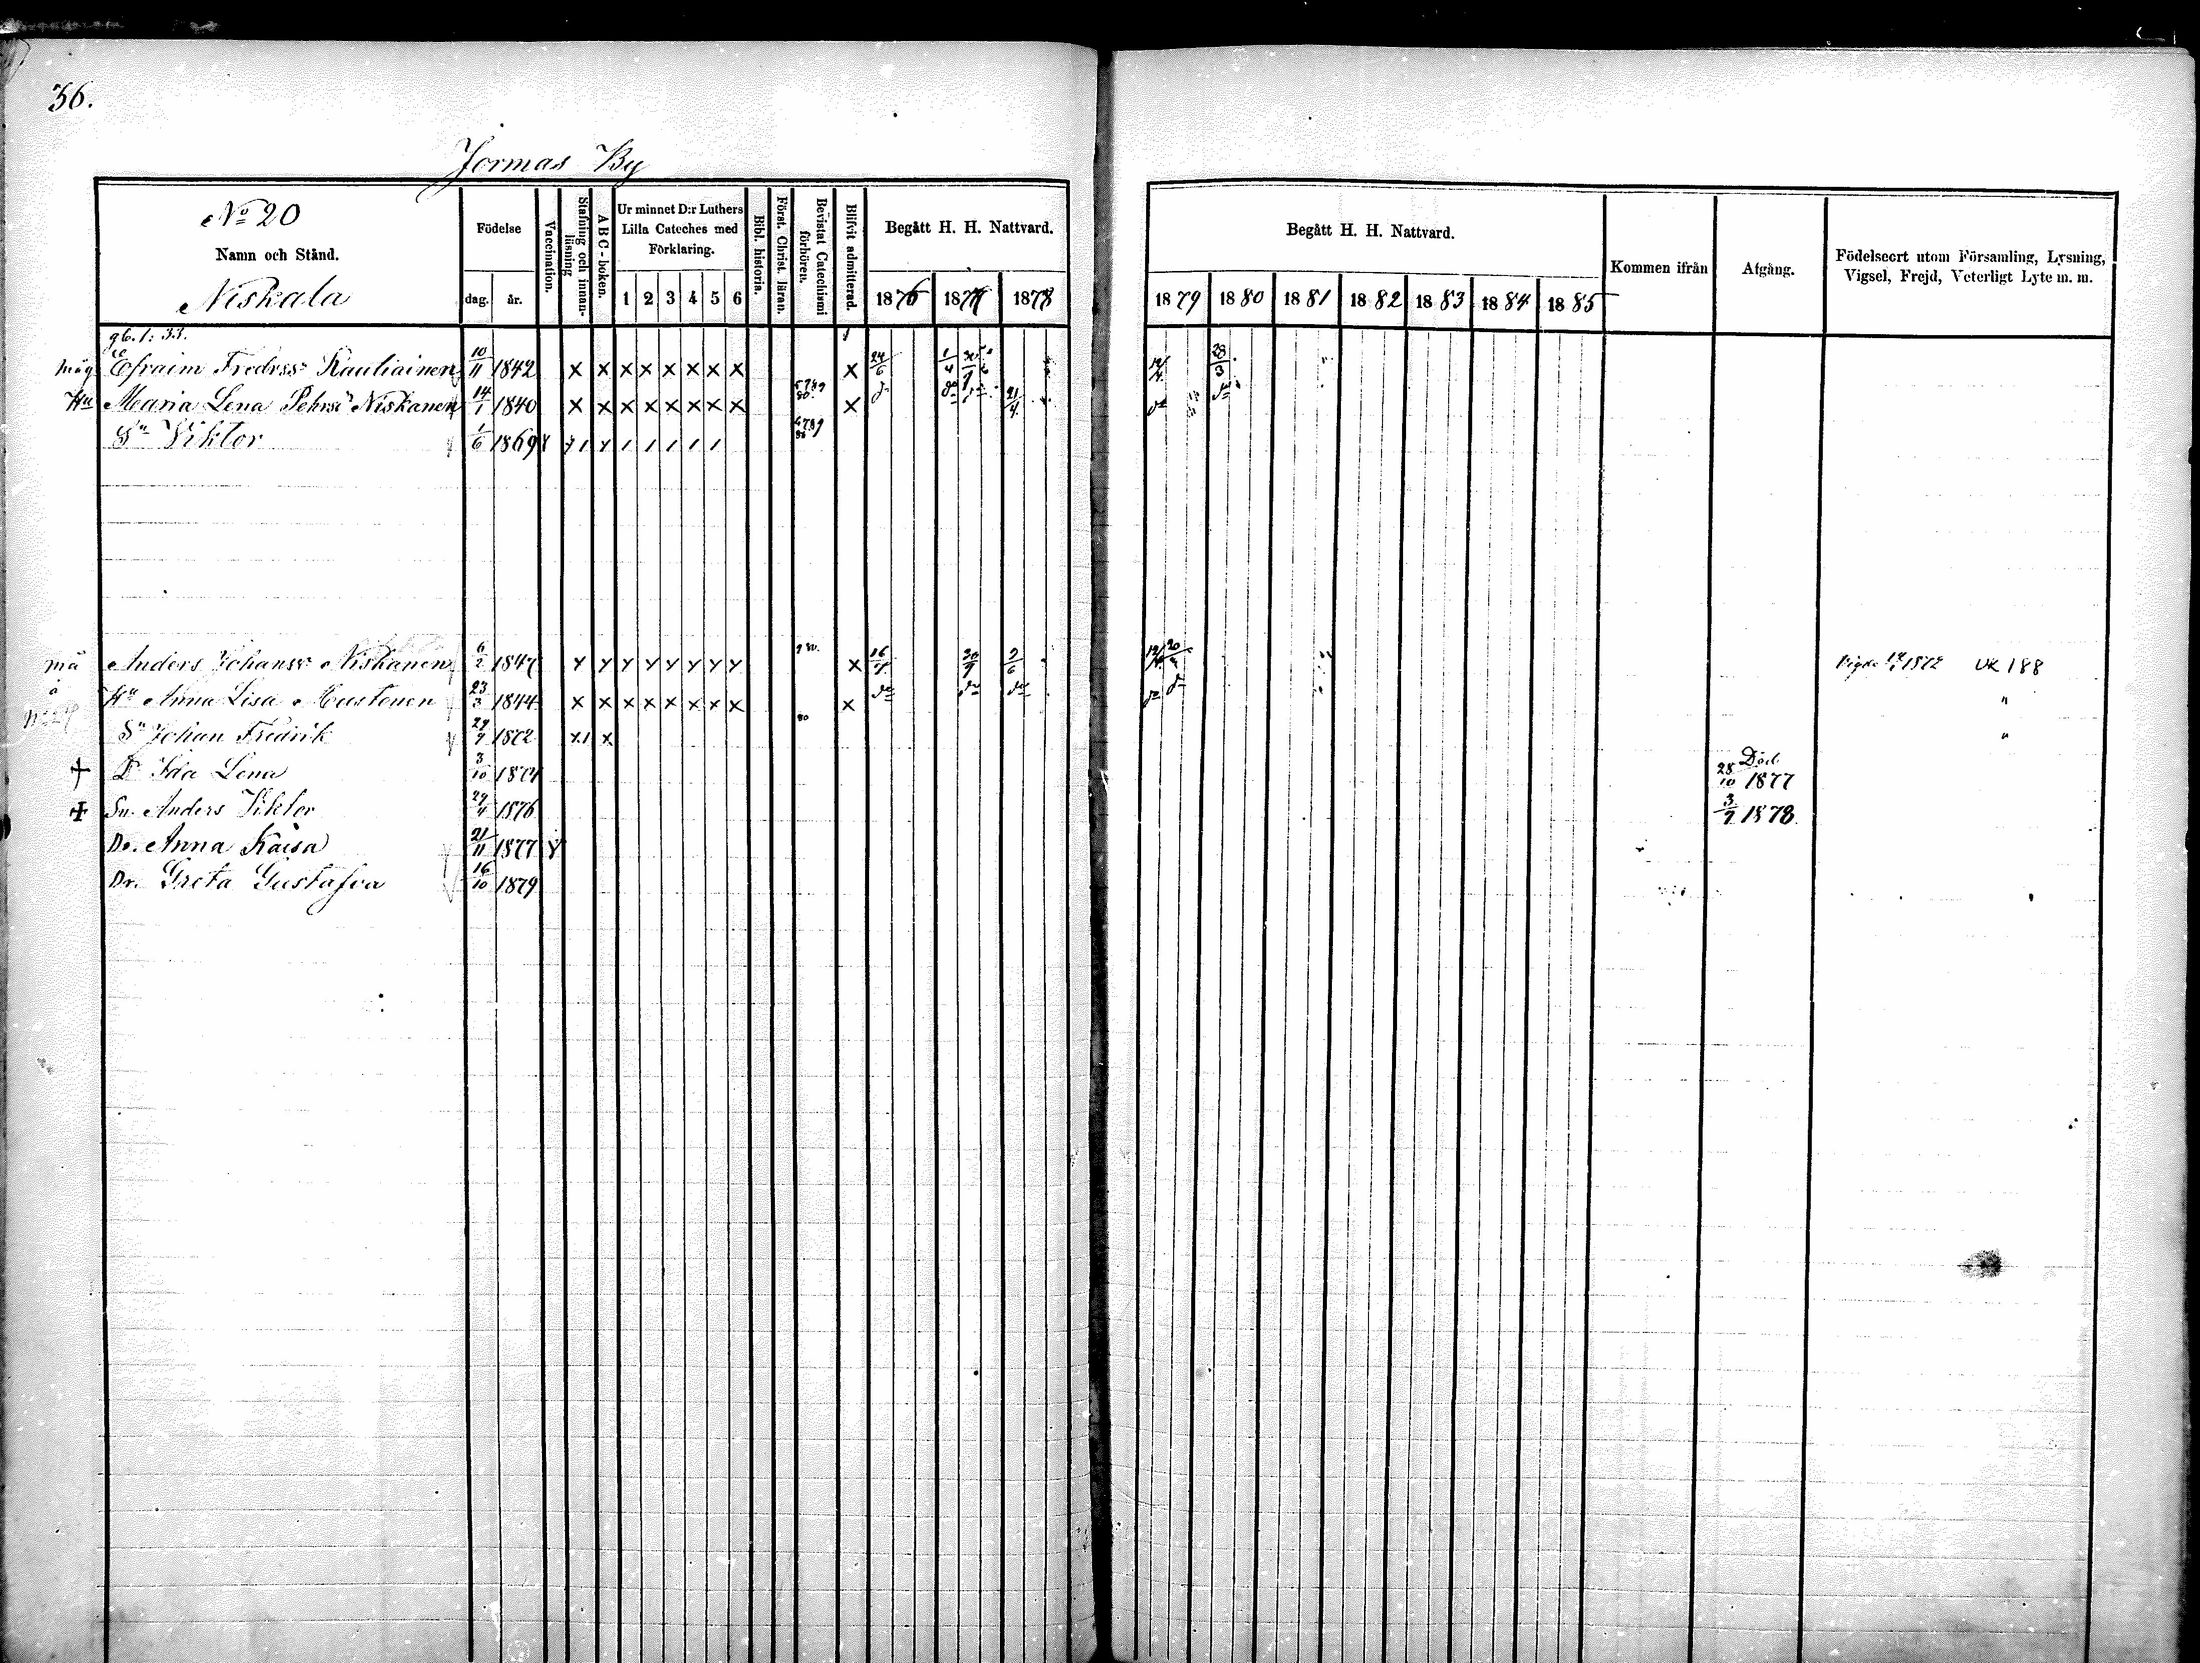 36.
Jormas By
No 20
Namn och Stånd.
Niskala
Födelse
dag. år.
Vaccination.
Stafning och innan-läsning
A B C-boken.
Ur minnet D:r Luthers
Lilla Cateches med
Förklaring.
1 2 3 4 5 6
Bibl. historia.
Först. Christ. läran.
Bevistat Catechismi förhören.
Blifvit admitterad.
Begått H. H. Nattvard.
1876 1877 1878
Begått H. H. Nattvard.
1879 1880 1881 1882 1883 1884 1885
Kommen ifrån
Afgång.
Födelseort utom Församling, Lysning,
Vigsel, Frejd, Veterligt Lyte m. m.
gb. 1: 33.
måg Efraim Fredrss Rautiainen 10/11 1842 x x x x x x x x x 24/6 1/4 12/4 28/3
Hu Maria Lena Pehrsd Niskanen 14/1 1840 x x x x x x x x x 21/4
Sn Viktor 1/6 1869
Anders Johanss Niskanen 6/2 1847 x x x x x x x x x 1872 UK 188
Hu Anna Lisa Mustonen 23/3 1844 x x x x x x x x x "
Sn Johan Fredrik 29/7 1872 x x "
+ Dr Ida Lena 3/10 1874 Död 28/10 1877
+ Sn. Anders Viktor 29/4 1876 3/7 1878
Dr. Anna Kaisa 21/11 1877
Dr. Greta Gustafva 16/10 1879